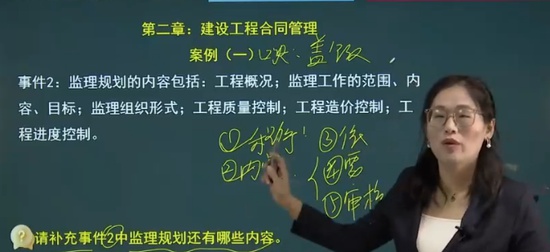 第二章：建设工程合同管理
案例（一）口决：盖
事件2：监理规划的内容包括：工程概况；监理工作的范围、内
容、目标；监理组织形式；工程质量控制；工程造价控制；工
程进度控制。
① ③依
②内 ④需
⑤审核
请补充事件2中监理规划还有哪些内容。